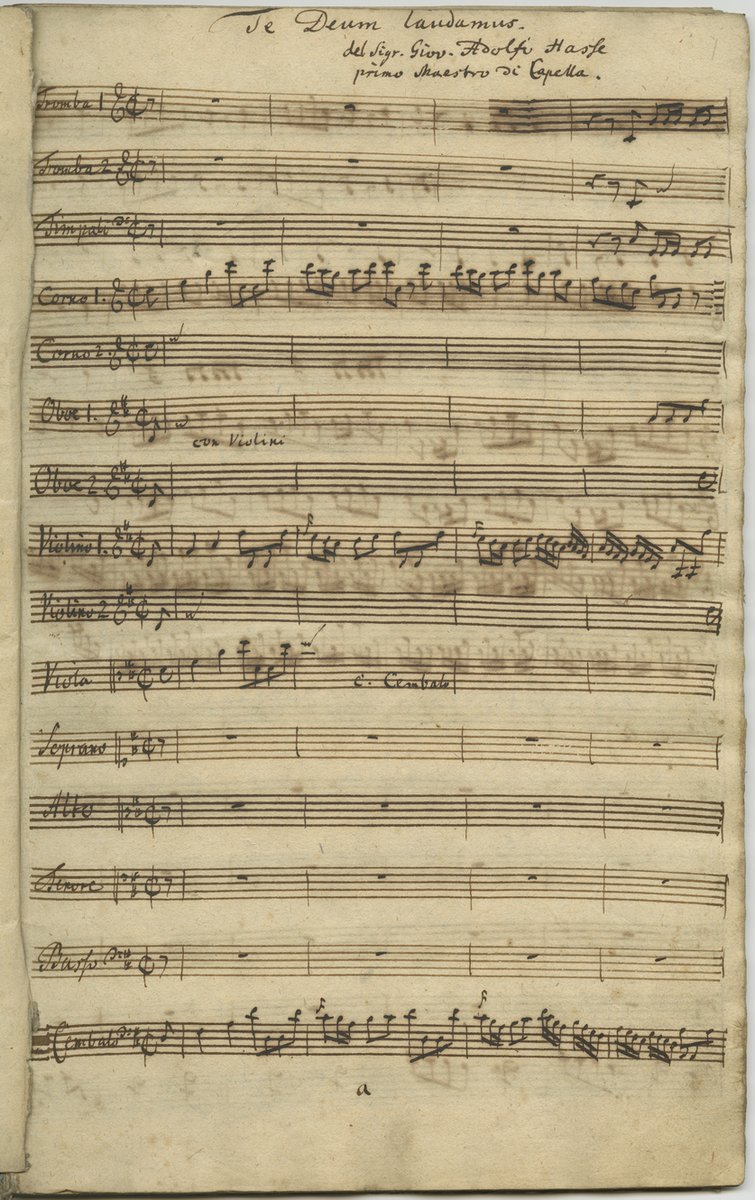 Te Deum laudamus.
del Sigr. Giov. Adolfo Hasse
primo Maestro di Capella.
Tromba 1
Tromba 2
Timpali
Corno 1.
Corno 2.
Oboe 1.
con Violini
Oboe 2
Violino 1.
Violino 2
Viola
c. Cembalo
Soprano
Alto
Tenore
Basso
Cembalo
a